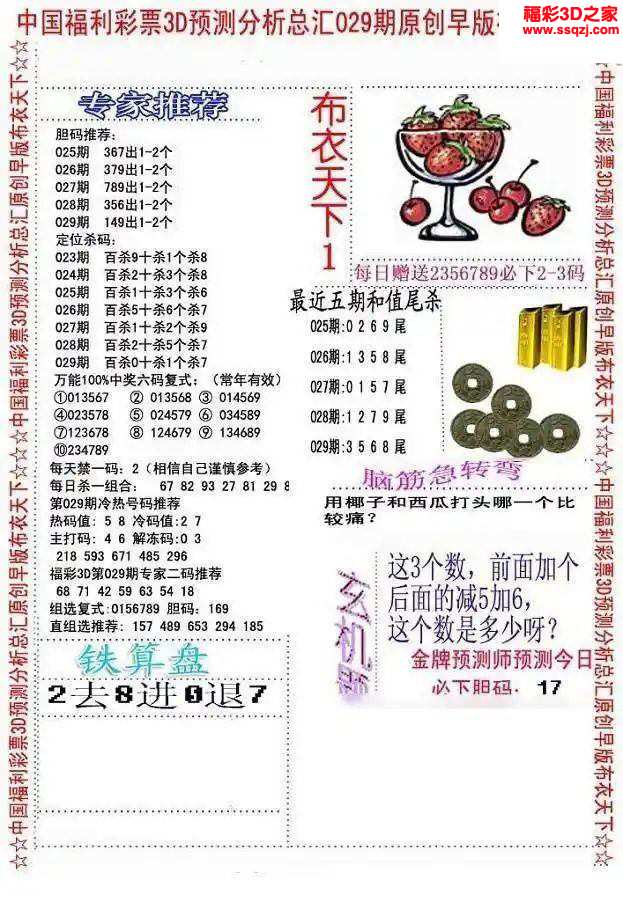 中国福利彩票3D预测分析总汇029期原创早版
福彩3D之家
www.ssqzj.com
☆☆中国福利彩票3D预测分析总汇原创早版布衣天下☆☆☆中国福利彩票3D预测分析总汇原创早版布衣天下☆
专家推荐
胆码推荐:
025期 367出1-2个
026期 379出1-2个
027期 789出1-2个
028期 356出1-2个
029期 149出1-2个
定位杀码:
023期 百杀9十杀1个杀8
024期 百杀2十杀3个杀8
025期 百杀1十杀3个杀6
026期 百杀5十杀6个杀7
027期 百杀1十杀2个杀9
028期 百杀2十杀5个杀7
029期 百杀0十杀1个杀7
万能100%中奖六码复式: (常年有效)
①013567 ② 013568 ③ 014569
④023578 ⑤ 024579 ⑥ 034589
⑦123678 ⑧ 124679 ⑨ 134689
⑩234789
每天禁一码: 2 (相信自己谨慎参考)
每日杀一组合: 67 82 93 27 81 29 8
第029期冷热号码推荐
热码值: 5 8 冷码值:2 7
主打码: 4 6 解冻码:0 3
218 593 671 485 296
福彩3D第029期专家二码推荐
68 71 42 59 63 54 18
组选复式:0156789 胆码: 169
直组选推荐: 157 489 653 294 185
铁算盘
2去8进0退7
布衣天下1
每日赠送2356789必下2-3码
最近五期和值尾杀
025期:0 2 6 9 尾
026期:1 3 5 8 尾
027期:0 1 5 7 尾
028期:1 2 7 9 尾
029期:3 5 6 8 尾
脑筋急转弯
用椰子和西瓜打头哪一个比
较痛?
玄机题
这3个数, 前面加个
后面的减5加6,
这个数是多少呀?
金牌预测师预测今日
必下胆码. 17
☆☆中国福利彩票3D预测分析总汇原创早版布衣天下☆☆☆中国福利彩票3D预测分析总汇原创早版布衣天下☆☆